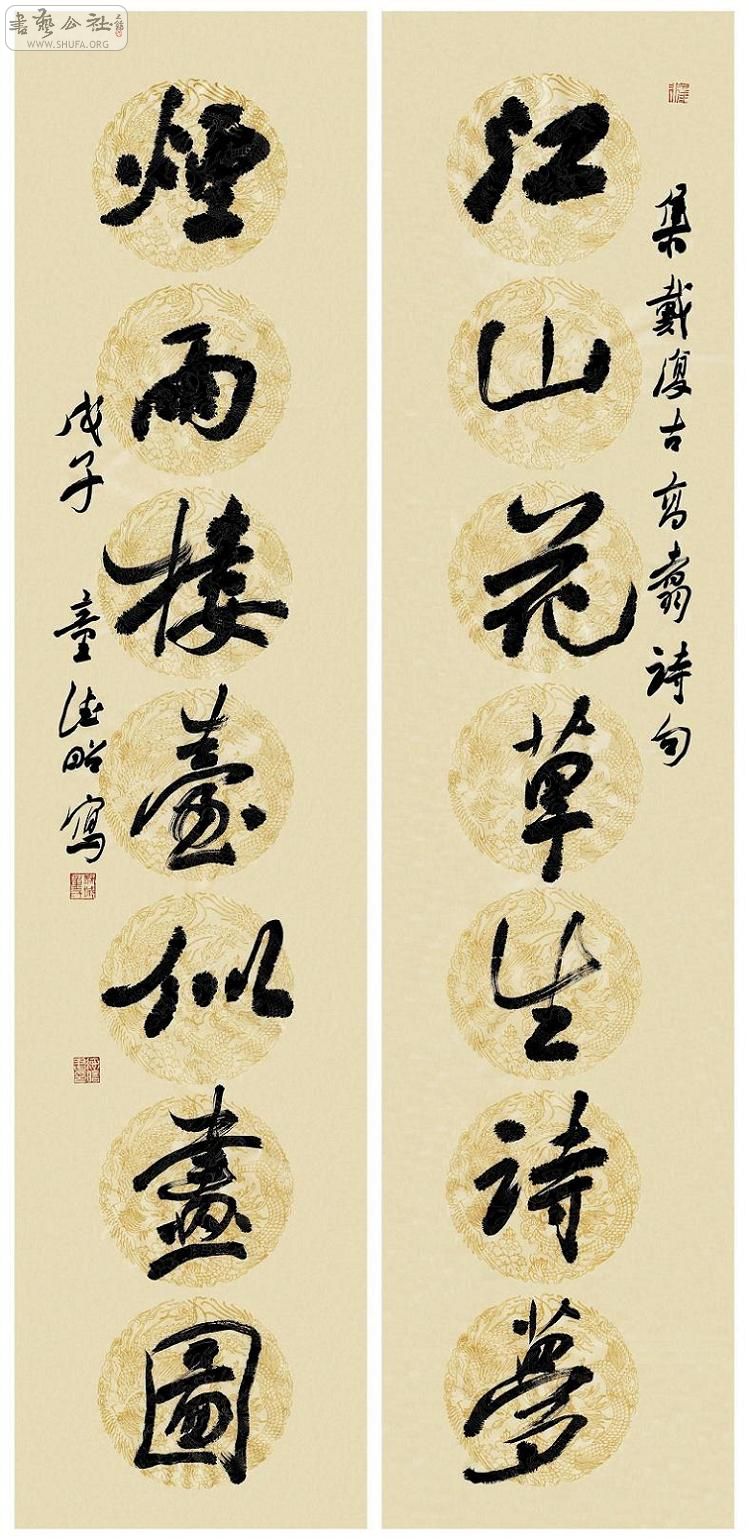 江山花草生詩夢
集戴復古高翥詩句
煙雨樓臺似畫圖
戊子 童德昭寫
書藝公社
WWW.SHUFA.ORG